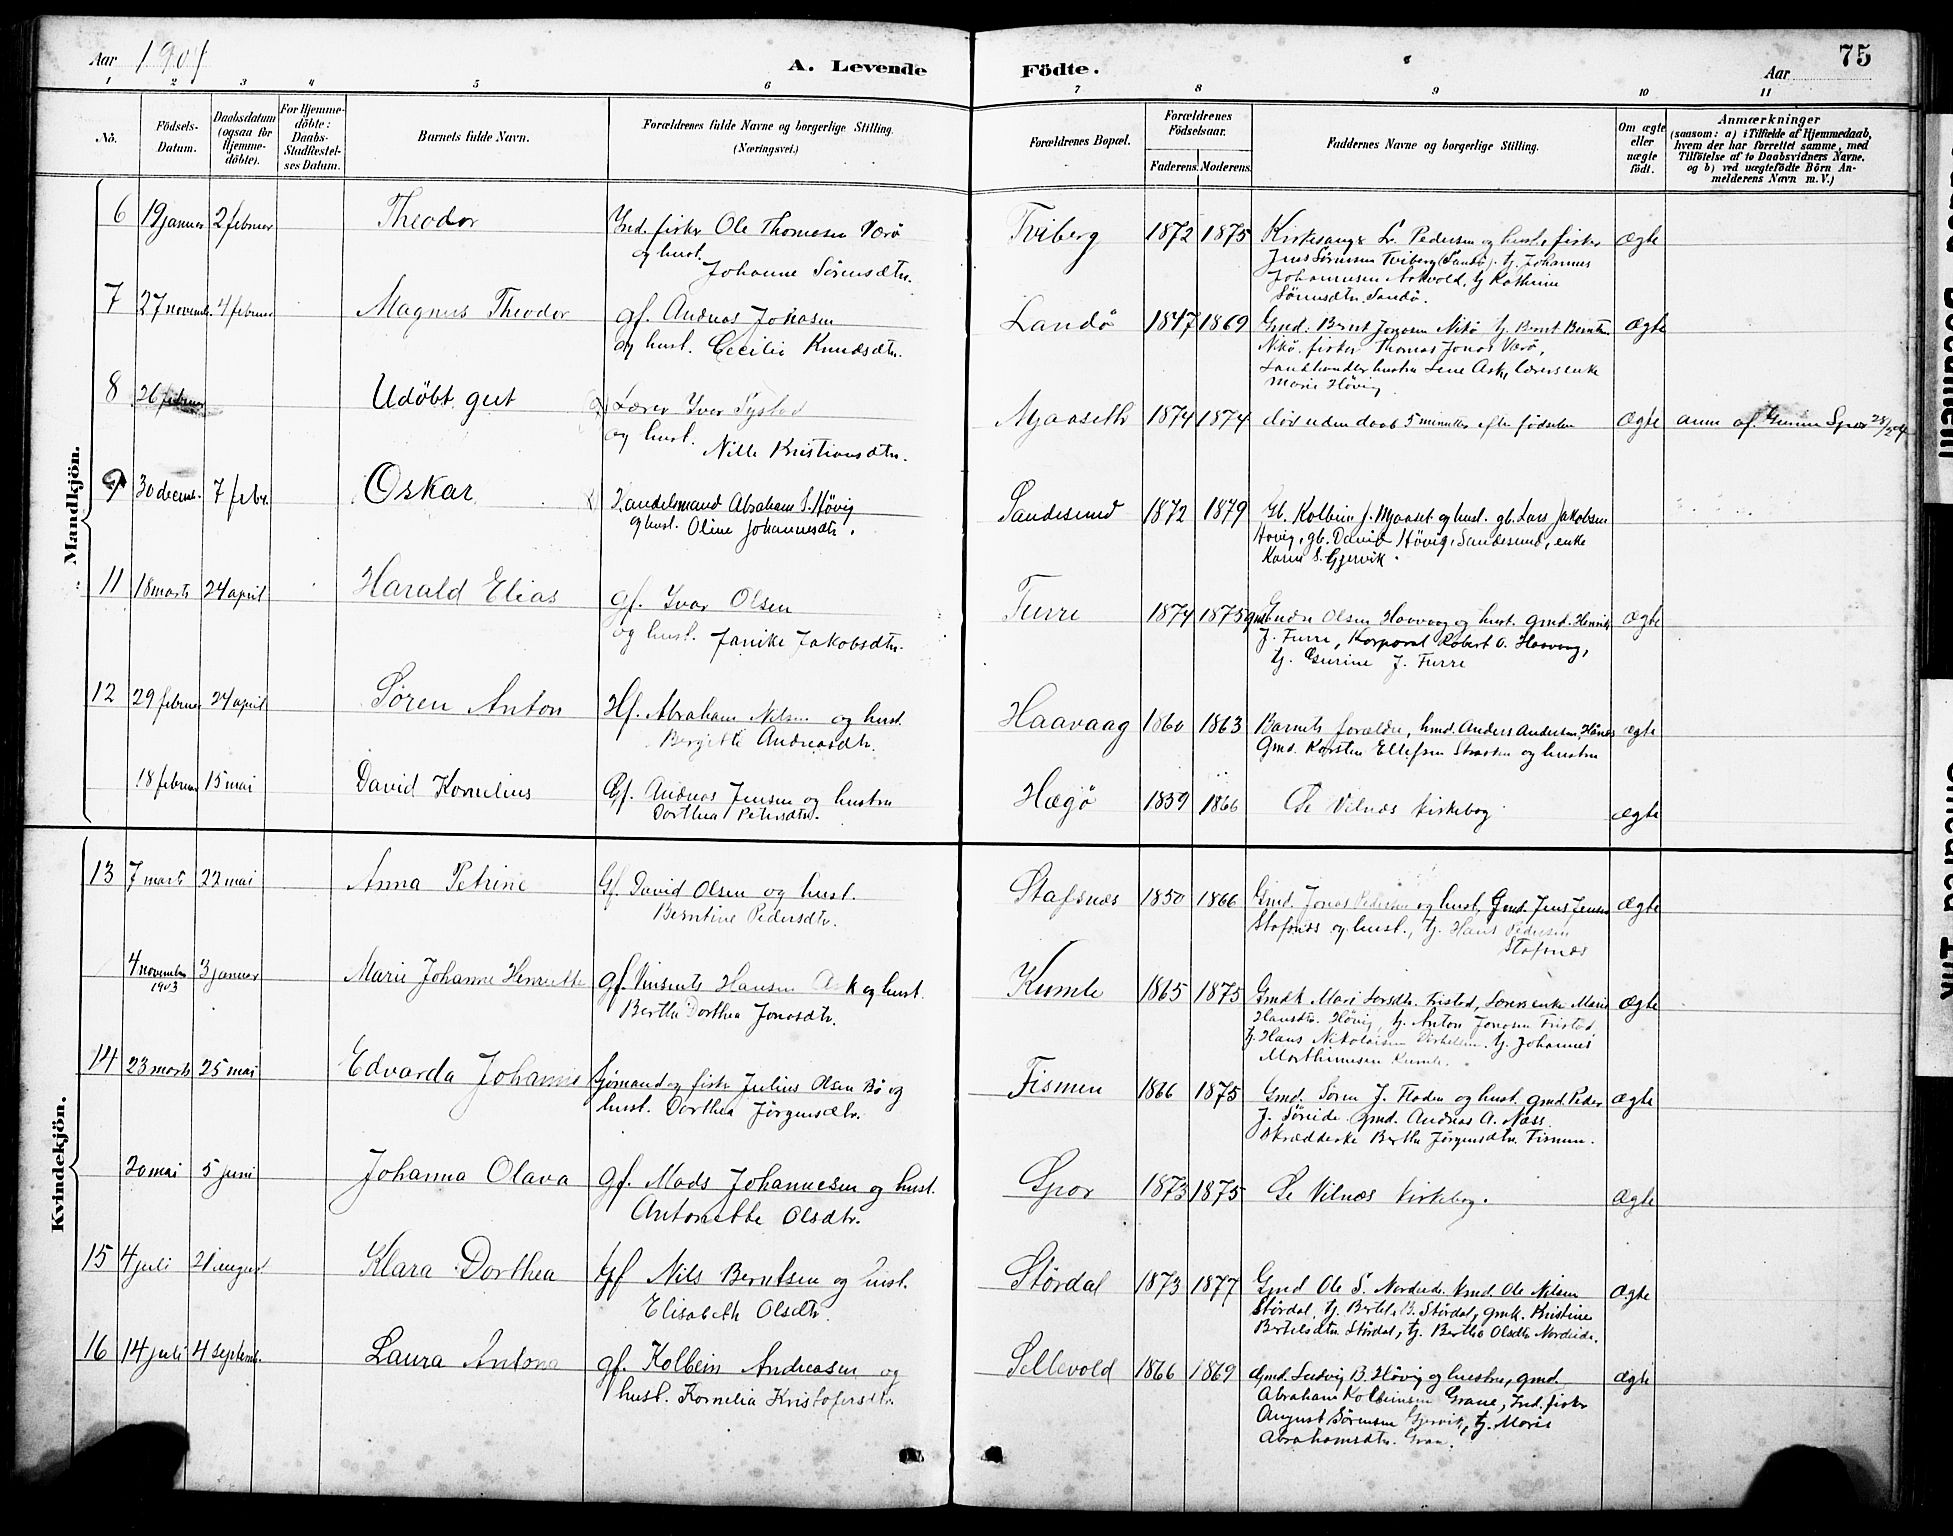 Aar 1904
A. Levende
Födte.
Aar
75
1 2 3 4 5 6 7 8 9 10 11
No.
Födsels-Datum.
Daabsdatum (ogsaa for Hjemmedöbte).
For Hjemmedöbte: Daabs-Stadfæstelses Datum.
Barnets fulde Navn.
Forældrenes fulde Navne og borgerlige Stilling.
(Næringsvei.)
Forældrenes Bopæl.
Forældrenes Födselsaar.
Faderens. Moderens.
Faddernes Navne og borgerlige Stilling.
Om ægte eller uægte födt.
Anmærkninger
(saasom: a) i Tilfælde af Hjemmedaab, hvem der har forrettet samme, med Tilföielse af to Daabsvidners Navne, og b) ved uægtefödte Börn Anmelderens Navn m. V.)
Mandkjön.
6 19 januar 2 februar Theodor Ind. fisker Ole Thomasen Værö Tviberg 1872 1875 Kirkesanger L. Pedersen og hustr. fisker Ægte
og hust. Johanne Sörensdtr. Jens Sörensen Tviberg (Sandö). Tj. Johannes
Johannesen Askvold, tj Kathrine
Sörensdtr. Sandö.
7 27 novemb. 4 februar Magnus Theodor gf. Andreas Jonasen Landö 1847 1869 Gmd. Bernt Jonasen Nikö tj. Bernt Berntsen Ægte
og hust. Cecilie Knudsdtr. Nikö. fisker Thomas Jonas Værö,
Landhandler hustru Lene Ask, lærers enke
Marie Hövig
8 26 februar Udöbt gut Lærer Iver Systad Mjaaseth 1874 1874 död uden daab 5 minutter efter födselen Ægte anm. af Gurine Spor
og hust. Nille Kristiansdtr.
9 30 decemb. 7 febr. Oskar Handelsmand Abraham S. Hövig Sandesund 1872 1879 Gb. Kolbein J. Mjaaset og hust. gb. Lars Jakobsen
og hust. Oline Johannesdtr. Hövig, gb. David Hövig, Sandesund, enke
Karen S. Gjervik.
11 18 marts 24 april Harald Elias gf. Ivar Olsen Furre 1874 1875 Olsen Haavaag og hust. gmd. Henrik Ægte
og hust. Janike Jakobsdtr. J. Furre, Korporal Robert O. Haavaag,
tj. Gurine J. Furre
12 29 februar 24 april Sören Anton Hf. Abraham Nilsen og hust. Haavaag 1860 1863 Barnets forældre, hmd. Anders Andersen, ægte
Bergitte Andreasdtr. Gmd. Karsten Ellefsen og hustru
18 februar 15 mai David Kornelius Gf. Andreas Jensen og hustru Hægö 1859 1866 Se Vilnæs kirkebog ægte
Dorthea Petersdtr.
Kvindekjön.
13 7 marts 22 mai Anna Petrine Gf. David Olsen og hust. Stafsnæs 1850 1866 Gmd. Jonas Pedersen og hust, Gmd. Jens Jensen Ægte
Berntine Pedersdtr. Stafsnæs og hust., tj. Hans Pedersen
Stafsnæs
4 november 1903 3 januar Marie Johanne Henriette gf. Vinsents Hansen Ask og hust. Kumle 1865 1875 Gmdk Mari Larsdtr. Tristad, Lærers enke Marie Ægte
Berthe Dorthea Jonasdtr. Hansdtr. Hövig, tj. Anton Jonasen Tristad,
tj. Hans Nikolaisen tj. Johannes
Morthinusen Kumle.
14 23 marts 25 mai Edvarda Johanne Sjömand og fisker Julius Olsen Bö og Fismen 1866 1875 Gmd. Sören J. Floden og hust. gmd. Peder Ægte
hust. Dorthea Jörgensdtr. J. Söreide. gmd. Andreas A. Næss.
Berthe Jörgensdtr. Fismen.
20 mai 5 juni Johanna Olava gf. Mads Johannesen og hust. Spor 1873 1875 Se Vilnæs kirkebog. Ægte
Antonette Olsdtr.
15 4 juli 21 august Klara Dorthea Gf Nils Berntsen og hust. Stördal 1873 1877 Gmd Ole S. Nordeide. Gmd. Ole Nilsen Ægte
Elisabeth Olsdtr. Stördal, tj. Bertel B. Stördal, gmk. Kristine
Bertelsdtr. Stördal, tj. Bertha Olsdtr Nordeide.
16 14 juli 4 septemb. Laura Antona gf. Kolbein Andreasen og Sellevold 1866 1869 Gmd. Ludvig B. Hövig og hustru, gmd. ægte
hust. Kornelia Kristofersdtr. Abraham Kolbeinsen Grane, Ind. fisker
August Sörensen Gjervik, tj. Marie
Abrahamsdtr. Grane.